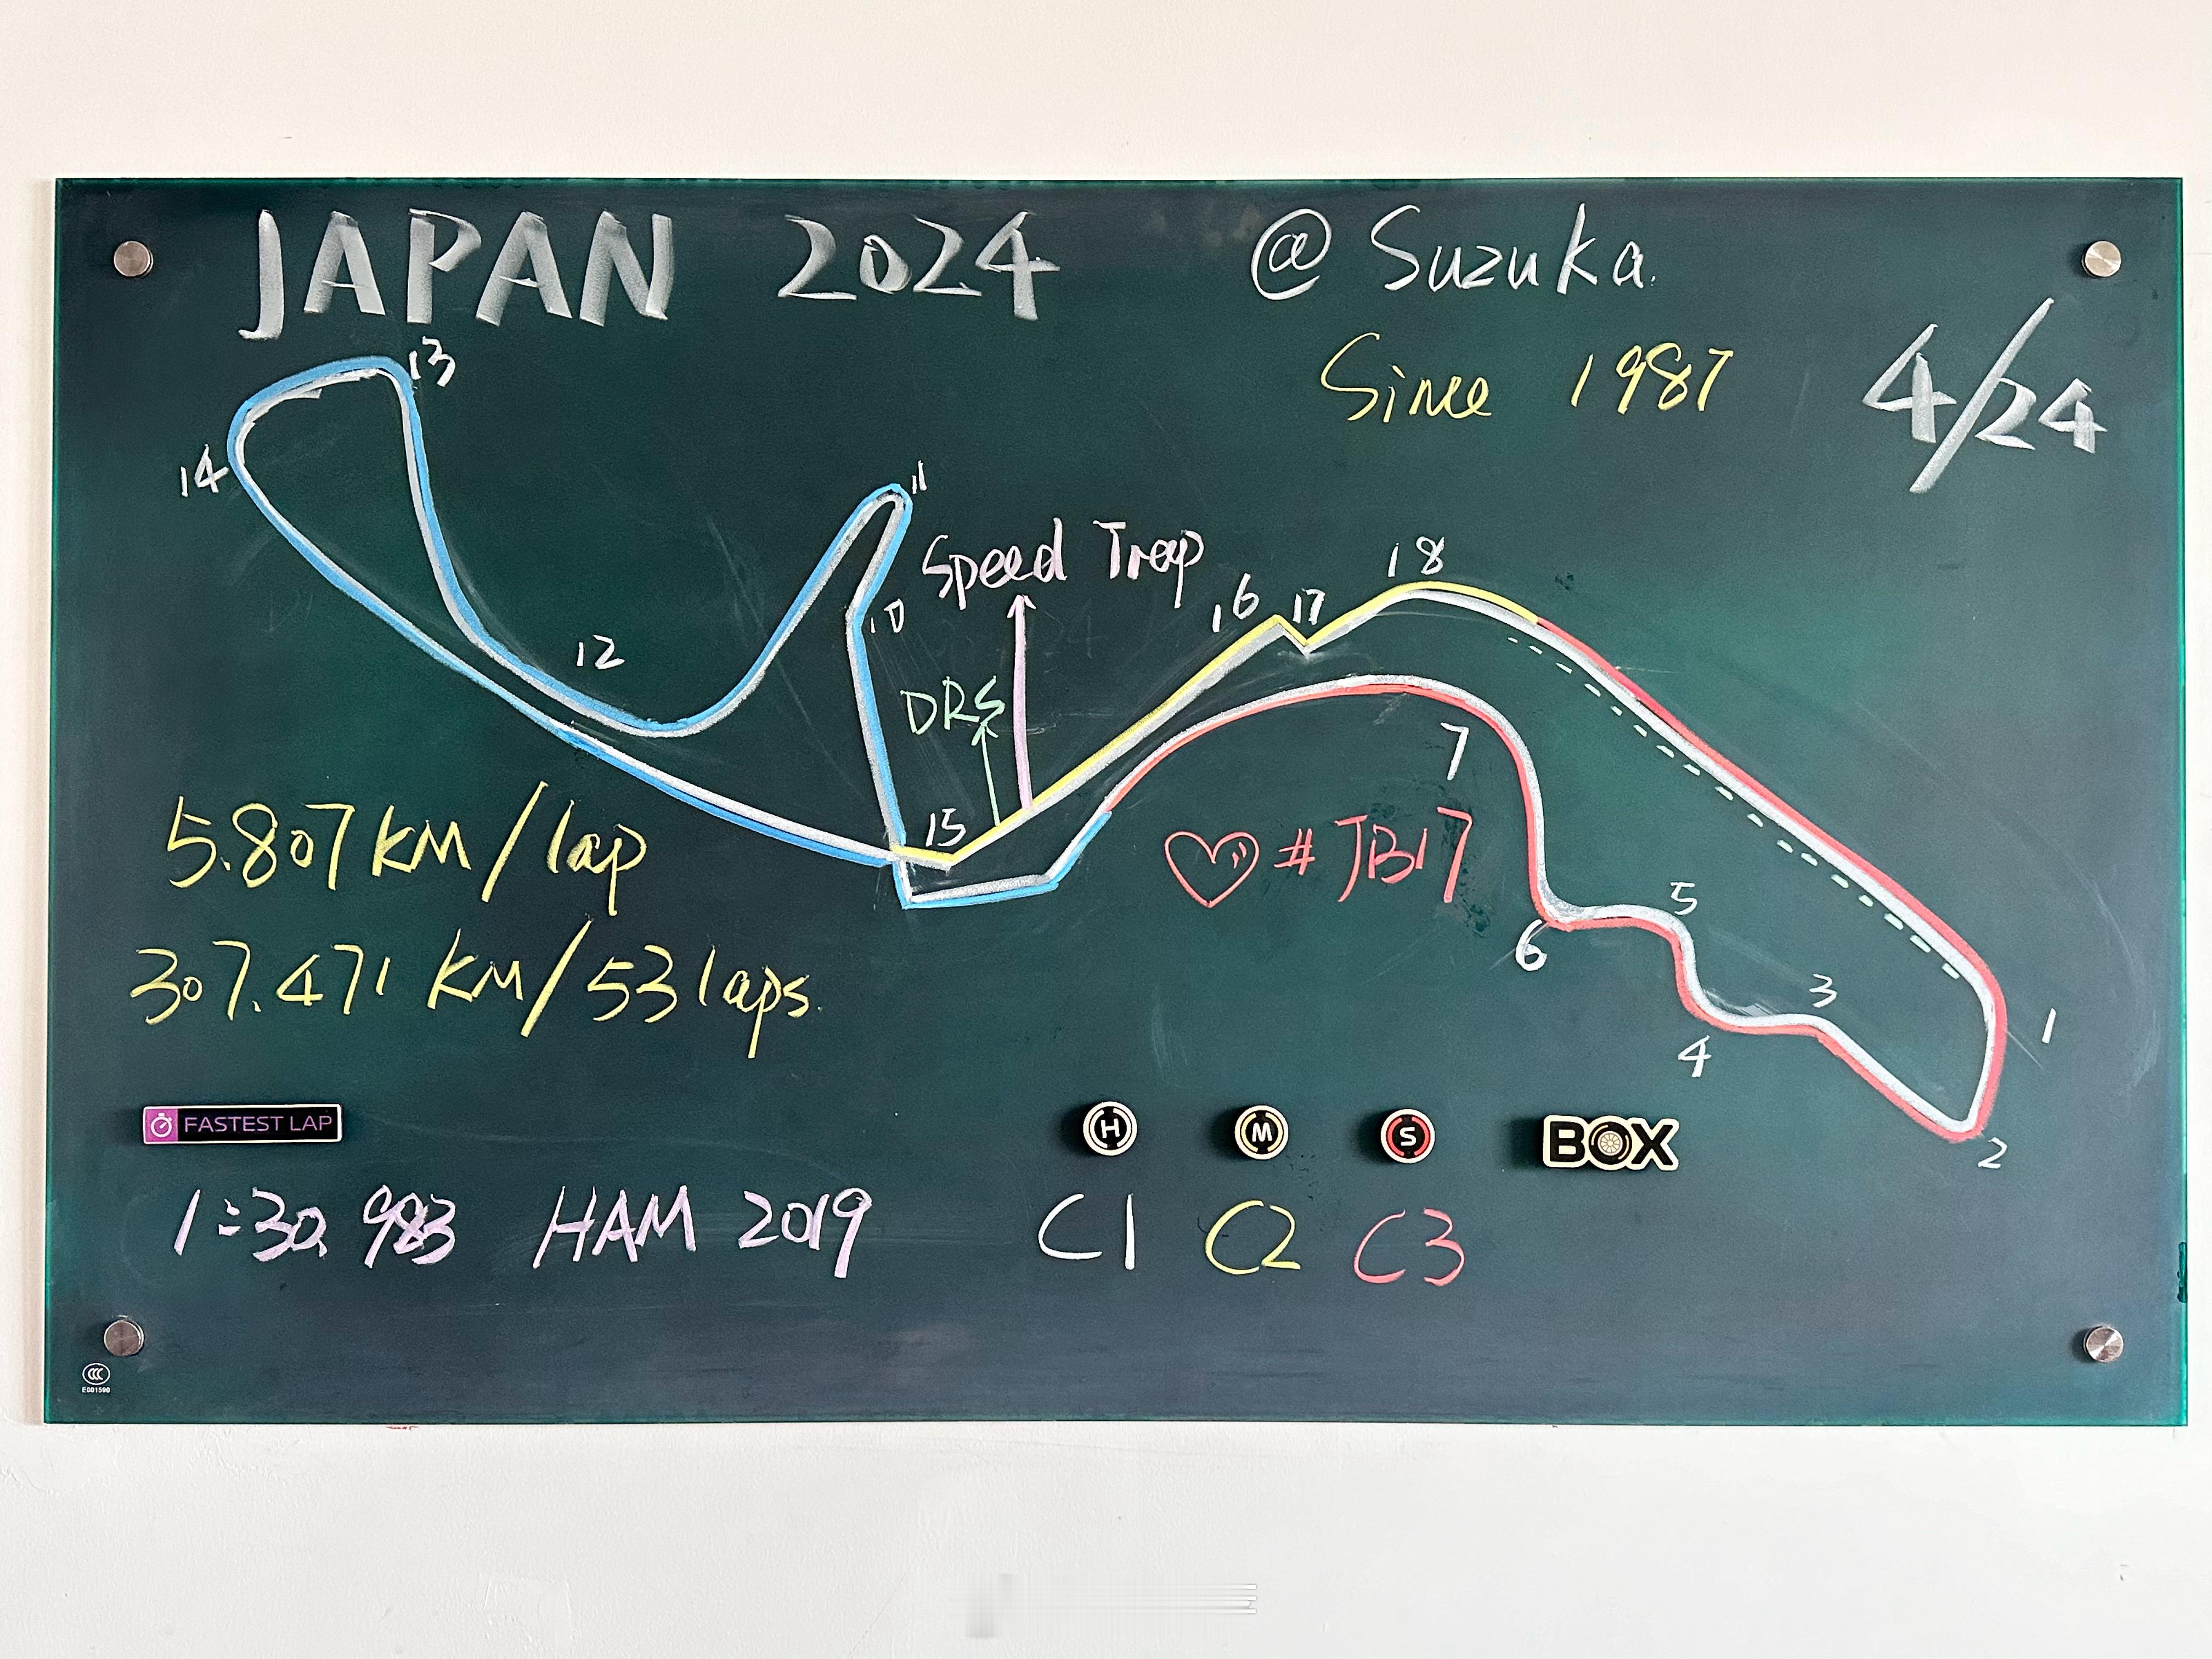 JAPAN 2024 @ Suzuka.
Since 1987
4/24
13
14
11
Speed Trap
10
12
DRS
16
17
18
15
7
♡ # JB17
5
6
3
4
1
2
5.807 KM/lap
307.471 KM/53 laps.
FASTEST LAP
1:30.983 HAM 2019
H M S BOX
C1 C2 C3
CCC
E001590